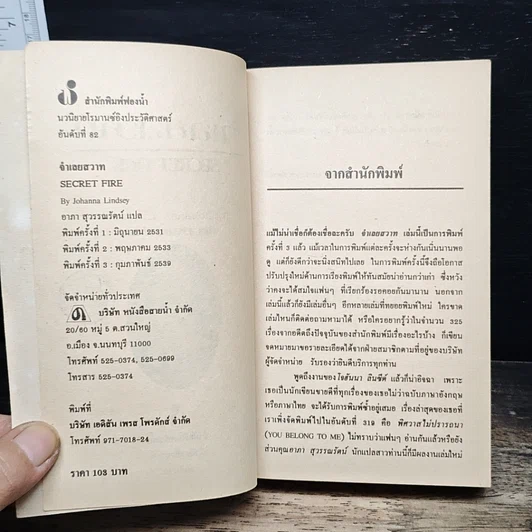 สำนักพิมพ์ฟองน้ำ
นวนิยายโรมานซ์อิงประวัติศาสตร์
อันดับที่ 82
จำเลยสวาท
SECRET FIRE
By Johanna Lindsey
อาภา สุวรรณรัตน์ แปล
พิมพ์ครั้งที่ 1 : มิถุนายน 2531
พิมพ์ครั้งที่ 2 : พฤษภาคม 2533
พิมพ์ครั้งที่ 3 : กุมภาพันธ์ 2539
จัดจำหน่ายทั่วประเทศ
บริษัท หนังสือสายน้ำ จำกัด
20/60 หมู่ 5 ต.สวนใหญ่
อ.เมือง จ.นนทบุรี 11000
โทรศัพท์ 525-0374, 525-0699
โทรสาร 525-0374
พิมพ์ที่
บริษัท เอดิสัน เพรส โพรดักส์ จำกัด
โทรศัพท์ 971-7018-24
ราคา 103 บาท
จากสำนักพิมพ์
แม้ไม่น่าเชื่อก็ต้องเชื่อละครับ จำเลยสวาท เล่มนี้เป็นการพิมพ์
ครั้งที่ 3 แล้ว แม้เวลาในการพิมพ์แต่ละครั้งจะห่างกันเนิ่นนานพอ
ดู แต่ก็ยังดีกว่าจะนิ่งสนิทไปเลย ในการพิมพ์ครั้งนี้จึงถือโอกาส
ปรับปรุงใหม่ด้านการเรียงพิมพ์ให้ทันสมัยน่าอ่านกว่าเก่า ซึ่งหวัง
ว่าคงจะได้สมใจแฟนๆ ที่เรียกร้องรอคอยกันมานาน นอกจาก
เล่มนี้แล้วก็ยังมีเล่มอื่นๆ อีกหลายเล่มที่ทยอยพิมพ์ใหม่ ใครขาด
เล่มไหนก็ติดต่อถามหามาได้ หรือใครอยากรู้ว่าในจำนวน 325
เรื่องจากอดีตถึงปัจจุบันของสำนักพิมพ์มีเรื่องอะไรบ้าง ก็เขียน
จดหมายมาขอรายละเอียดได้จากฝ่ายสมาชิกตามที่อยู่ของบริษัท
ผู้จัดจำหน่าย รับรองว่ายินดีบริการทุกท่าน
พูดถึงงานของ โจฮันนา ลินซีย์ แล้วก็น่าอิจฉา เพราะ
เธอเป็นนักเขียนขายดีที่ทุกเรื่องของเธอไม่ว่าฉบับภาษาอังกฤษ
หรือภาษาไทย จะได้รับการพิมพ์ซ้ำอยู่เสมอ เรื่องล่าสุดของเธอที่
เราเพิ่งจัดพิมพ์ไปในอันดับที่ 319 คือ พิศวาสไม่ปรารถนา
(YOU BELONG TO ME) ไม่ทราบว่าแฟนๆ อ่านกันแล้วหรือยัง
ส่วนคุณอาภา สุวรรณรัตน์ นักแปลสาวท่านนี้ก็มีผลงานเล่มใหม่